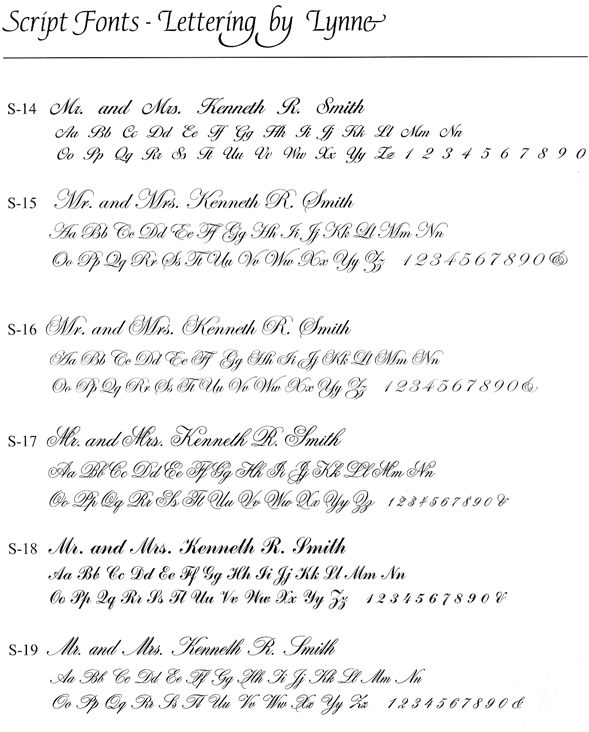 Script Fonts - Lettering by Lynne
S-14 Mr. and Mrs. Kenneth R. Smith
Aa Bb Cc Dd Ee Ff Gg Hh Ii Jj Kk Ll Mm Nn
Oo Pp Qq Rr Ss Tt Uu Vv Ww Xx Yy Zz 1 2 3 4 5 6 7 8 9 0
S-15 Mr. and Mrs. Kenneth R. Smith
Aa Bb Cc Dd Ee Ff Gg Hh Ii Jj Kk Ll Mm Nn
Oo Pp Qq Rr Ss Tt Uu Vv Ww Xx Yy Zz 1 2 3 4 5 6 7 8 9 0 &
S-16 Mr. and Mrs. Kenneth R. Smith
Aa Bb Cc Dd Ee Ff Gg Hh Ii Jj Kk Ll Mm Nn
Oo Pp Qq Rr Ss Tt Uu Vv Ww Xx Yy Zz 1 2 3 4 5 6 7 8 9 0 &
S-17 Mr. and Mrs. Kenneth R. Smith
Aa Bb Cc Dd Ee Ff Gg Hh Ii Jj Kk Ll Mm Nn
Oo Pp Qq Rr Ss Tt Uu Vv Ww Xx Yy Zz 1 2 3 4 5 6 7 8 9 0 &
S-18 Mr. and Mrs. Kenneth R. Smith
Aa Bb Cc Dd Ee Ff Gg Hh Ii Jj Kk Ll Mm Nn
Oo Pp Qq Rr Ss Tt Uu Vv Ww Xx Yy Zz 1 2 3 4 5 6 7 8 9 0 &
S-19 Mr. and Mrs. Kenneth R. Smith
Aa Bb Cc Dd Ee Ff Gg Hh Ii Jj Kk Ll Mm Nn
Oo Pp Qq Rr Ss Tt Uu Vv Ww Xx Yy Zz 1 2 3 4 5 6 7 8 9 0 &